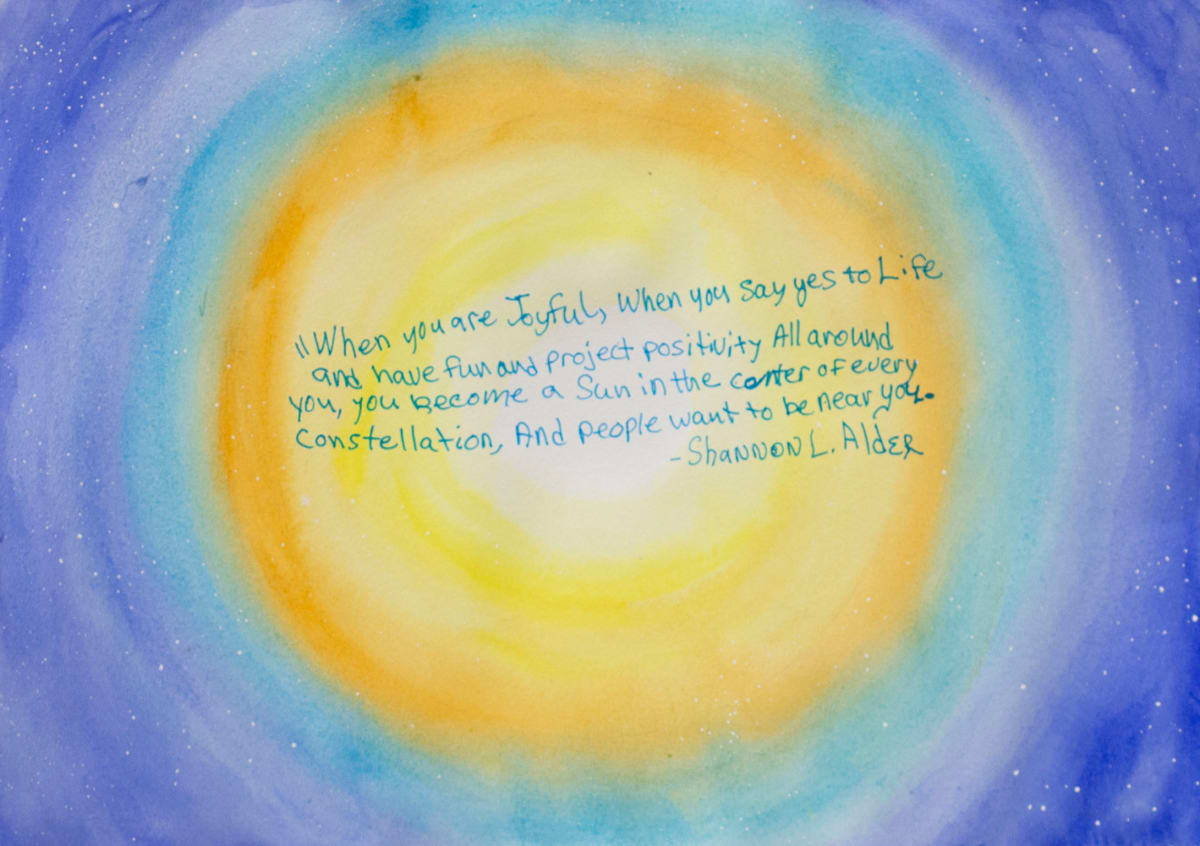 "When you are Joyful, When you say yes to Life
and have fun and project positivity All around
you, you become a Sun in the center of every
Constellation, And people want to be near you.
-Shannon L. Alder